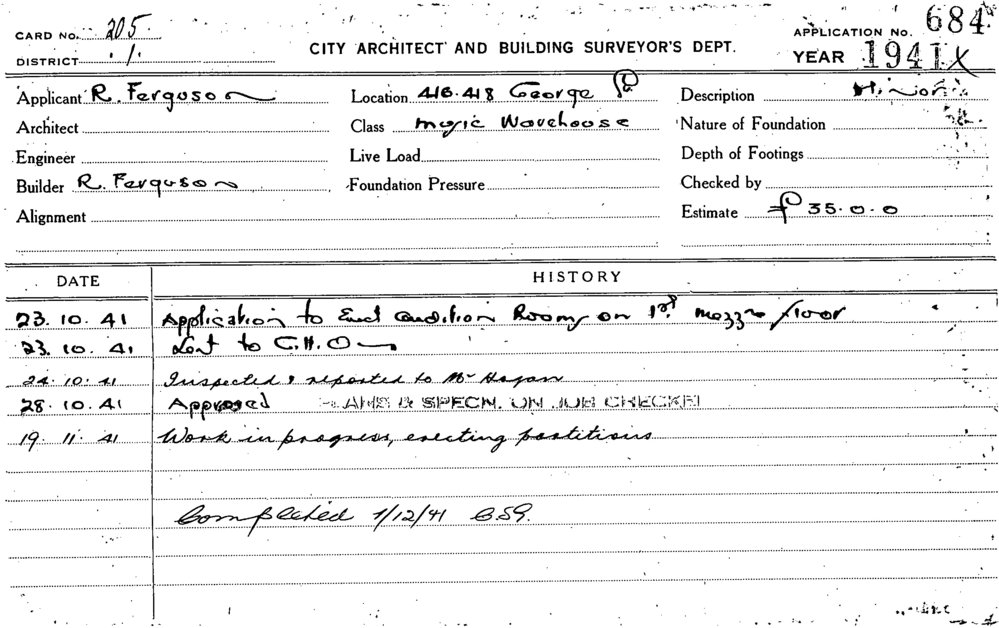 CARD No. 205.
DISTRICT 1.
CITY ARCHITECT AND BUILDING SURVEYOR'S DEPT.
APPLICATION No. 684
YEAR 1941 X
Applicant R. Ferguson
Location 416.418 George St
Description
Architect
Class Music Warehouse
Nature of Foundation
Engineer
Live Load
Depth of Footings
Builder R. Ferguson
Foundation Pressure
Checked by
Alignment
Estimate £ 35.0.0
DATE HISTORY
23.10.41 Application to Erect Audition Rooms on 1st. Mezzne floor
23.10.41 Sent to C.H.O
24.10.41 Inspected & reported to Mr Hogan
28.10.41 Approved PLANS & SPECN. ON JOB CHECKED
19.11.41 Work in progress, erecting partitions
Completed 1/12/41